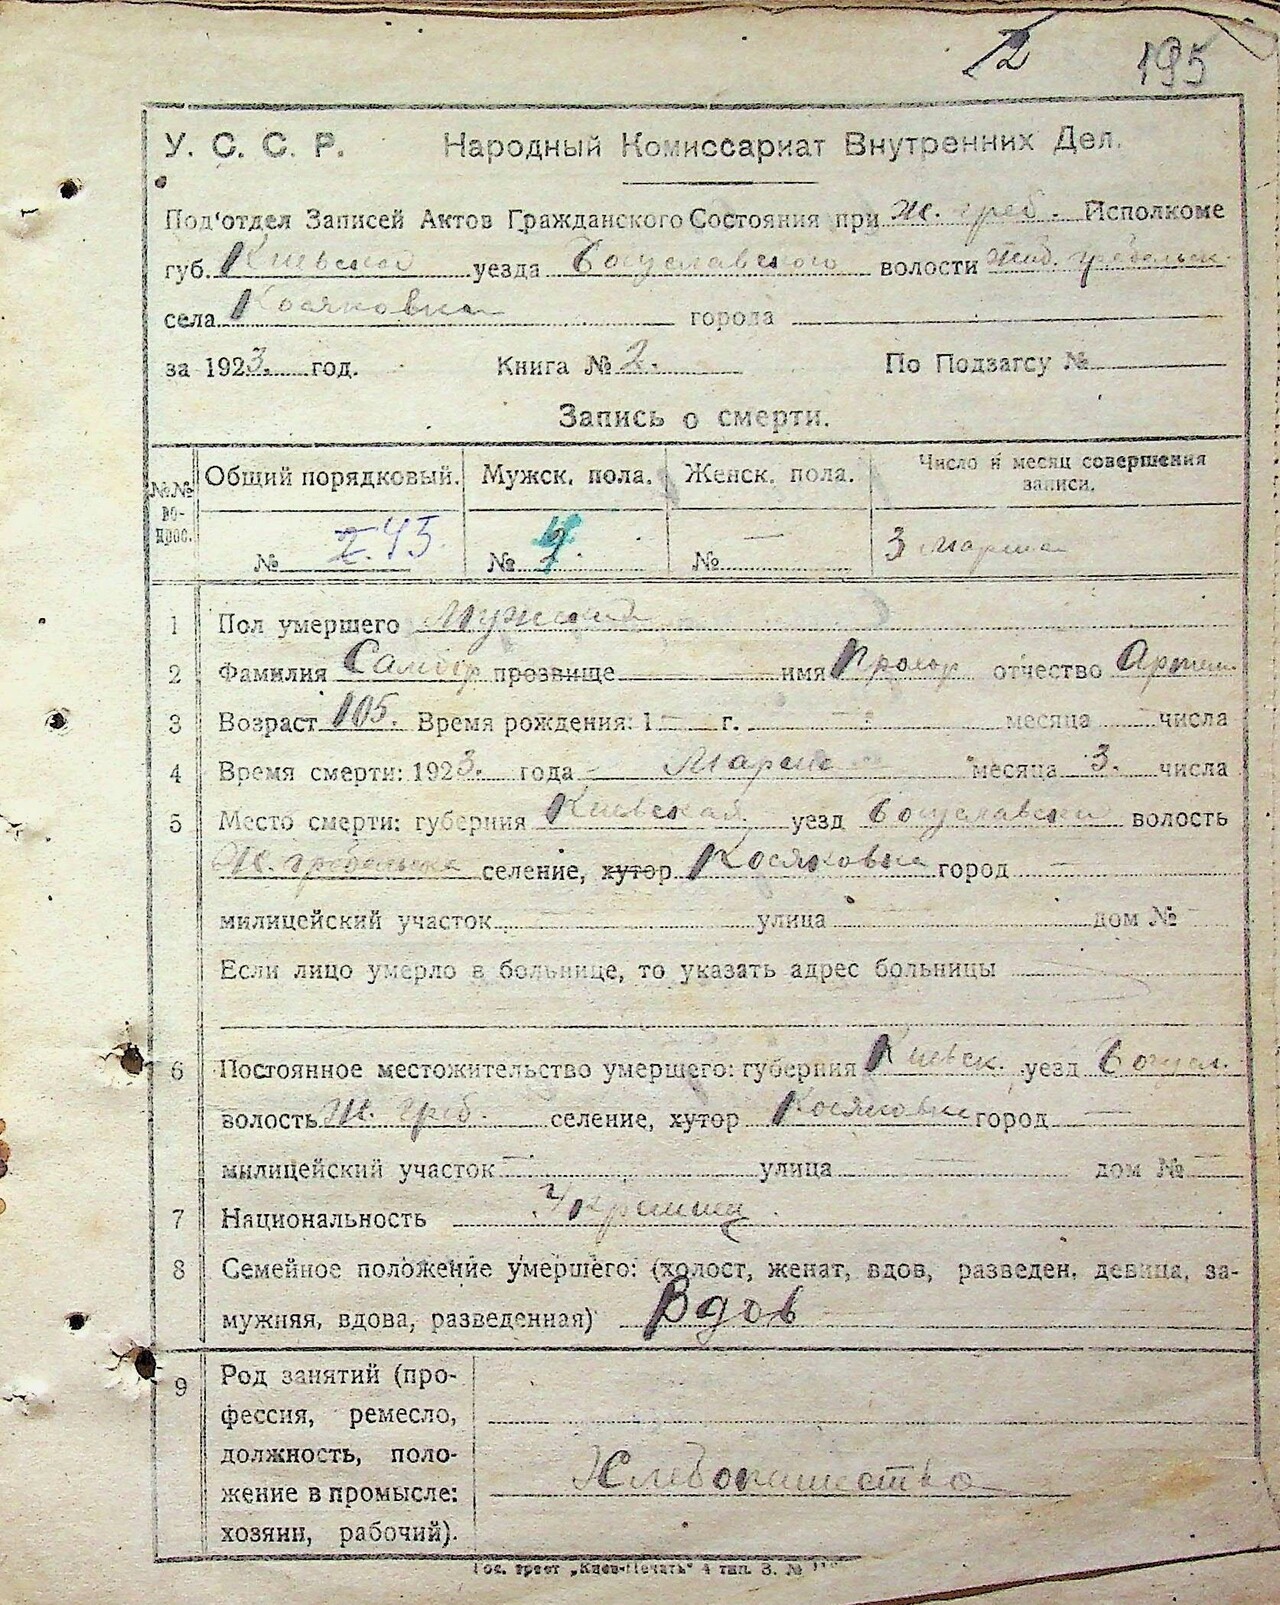 12 195
У. С. С. Р. Народный Комиссариат Внутренних Дел.
Под'отдел Записей Актов Гражданского Состояния при Ж. греб. Исполкоме
губ. Киевской уезда Богуславского волости Жид. гребельск.
села Косяковка города
за 1923. год. Книга № 2. По Подзагсу №
Запись о смерти.
№№ во- прос. Общий порядковый. Мужск. пола. Женск. пола. Число и месяц совершения записи.
№ 2.45. № № — 3 марта
1 Пол умершего Мужской
2 Фамилия Самбір прозвище имя Прохор отчество Артем
3 Возраст 105. Время рождения: 1— г. — месяца — числа
4 Время смерти: 1923. года Марта месяца 3. числа
5 Место смерти: губерния Киевская уезд Богуславский волость
Ж. гребельска селение, хутор Косяковка город —
милицейский участок — улица — дом № —
Если лицо умерло в больнице, то указать адрес больницы —
6 Постоянное местожительство умершего: губерния Киевск. уезд Богусл.
волость Ж. греб. селение, хутор Косяковка город —
милицейский участок — улица — дом № —
7 Национальность Украинец
8 Семейное положение умершего: (холост, женат, вдов, разведен, девица, за-
мужняя, вдова, разведенная) Вдов
9 Род занятий (про-
фессия, ремесло,
должность, поло-
жение в промысле: Хлебопашество
хозяин, рабочий).
Гос. трест „Киев-Печать" 4 тип. З. №